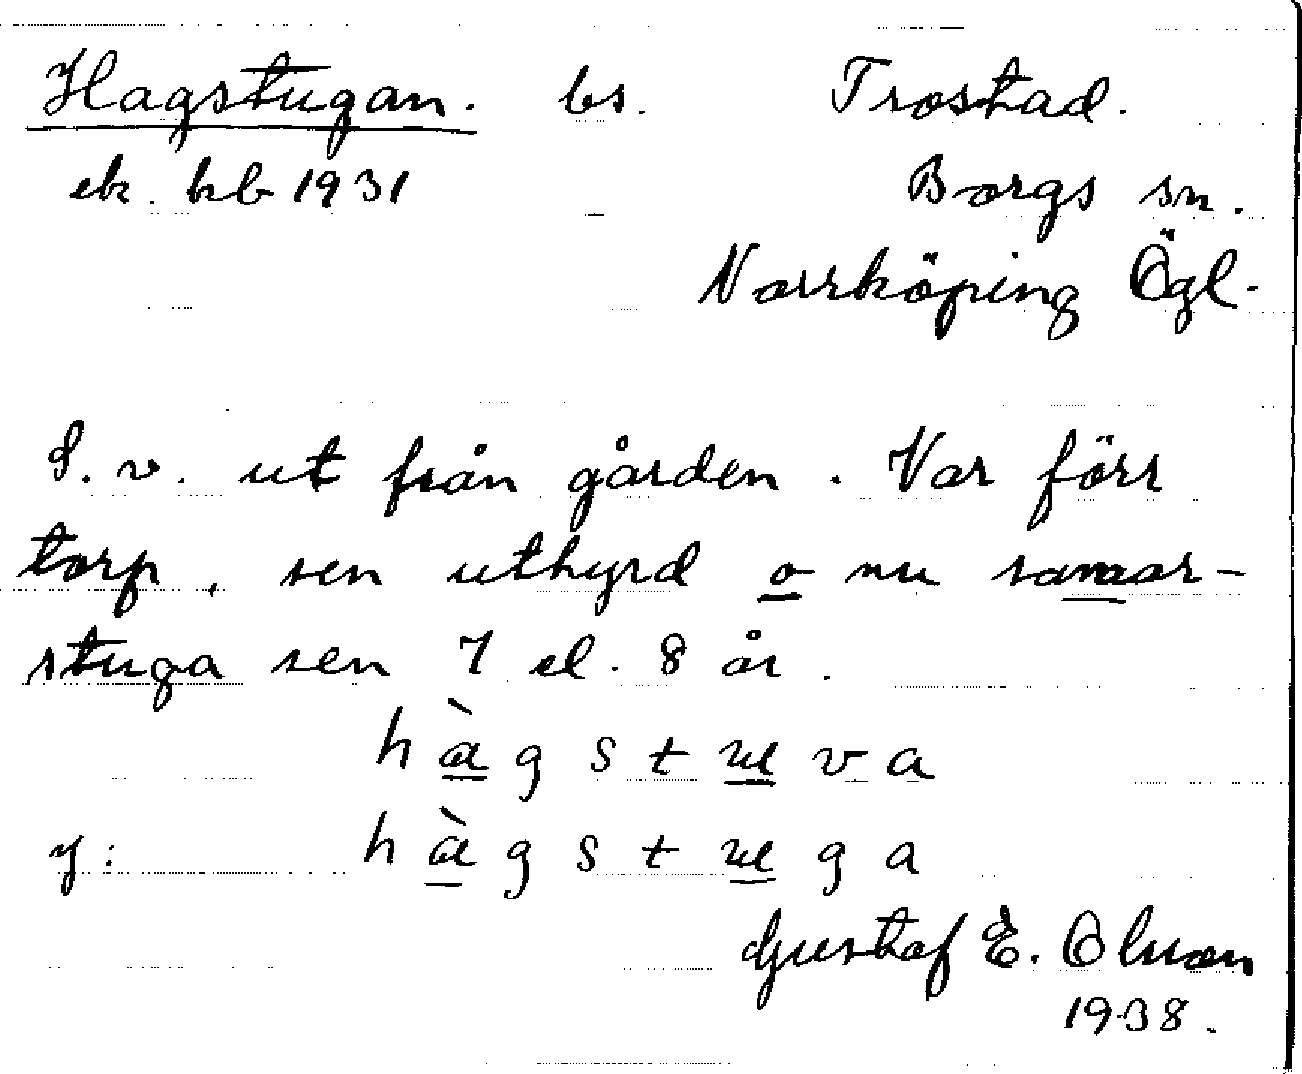 Hagstugan. bs. Trostad.
ek. kb 1931 Borgs sn.
Norrköping Ögl.
S. v. ut från gården. Var förr
torp, sen uthyrd o nu somar-
stuga sen 7 el. 8 år.
h à g s t u v a
y: h à g s t u g a
Gustaf E. Olson
1938.